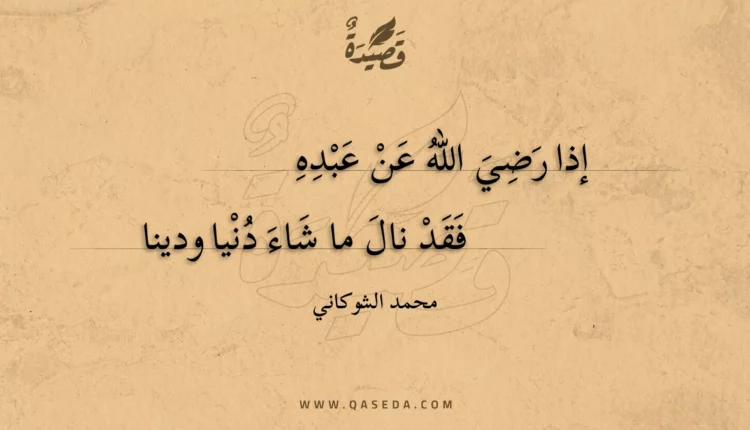 قَصِيدَةٌ
إذا رَضِيَ اللهُ عَنْ عَبْدِهِ
فَقَدْ نالَ ما شَاءَ دُنْيا ودينا
محمد الشوكاني
WWW.QASEDA.COM